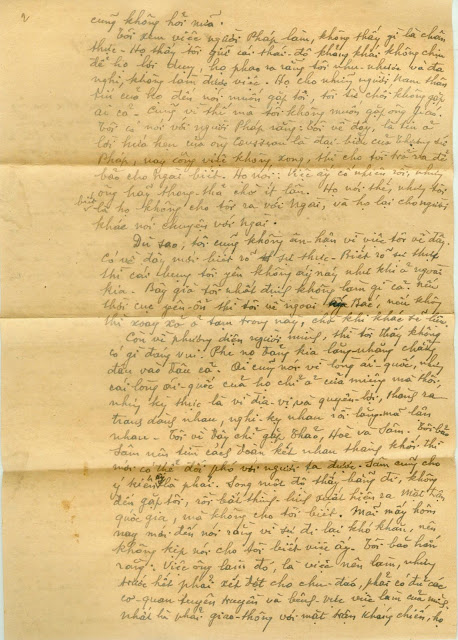 2
cũng không hỏi nữa.
Tôi xem việc người Pháp làm, không thấy gì là chân
thực - Họ thấy tôi giữ cái thái-độ khảng khái không chịu
để họ lợi dụng, họ phao ra rằng tôi nhu-nhược và đa
nghi, không làm được việc - Họ cho những người Nam thân
tín của họ đến nói muốn gặp tôi, tôi từ chối không gặp
ai cả - Cũng vì thế mà tôi không muốn gặp ông
Tôi có nói với người Pháp rằng: Tôi về đây, là tin ở
lời hứa hẹn của ông Cousseau là đại-biểu của
Pháp, nay công việc không xong, thì cho tôi trở ra để
báo cho Ngài biết. Họ nói: Việc ấy cố nhiên rồi, nhưng
ông hãy thong-thả chờ ít lâu. Họ nói thế, nhưng tôi
biết là họ không cho tôi ra với Ngài, và họ lại cho người
khác nói chuyện với Ngài.
Dù sao, tôi cũng không ân-hận về việc tôi về đây.
Có về đây mới biết rõ sự thực - Biết rõ sự thực
thì cái bụng tôi yên không áy náy như khi ở ngoài
kia - Bây giờ tôi nhất định không làm gì cả - nếu
thời cục yên-ổn thì tôi về ngoài Bắc, nếu không
thì xoay xở ở tạm trong này, chờ khi khác sẽ liệu.
Còn về phương diện người mình, thì tôi thấy không
có gì đáng vui. Phe nọ đảng kia lăng-nhăng chẳng
đâu vào đâu cả. Ai cũng nói vì lòng ái-quốc, nhưng
cái lòng ái-quốc của họ chỉ ở cửa miệng mà thôi,
nhưng kỳ thực là vì địa-vị và quyền-lợi, thành ra
tranh dành nhau, nghi-kỵ nhau rồi lăng-mạ lẫn
nhau - Tôi về đây chỉ gặp Thảo, Hoè và Sâm. Tôi bảo
Sâm nên tìm cách đoàn kết nhau thành khối thì
mới có thể đối phó với người ta được - Sâm cũng cho
ý kiến ấy là phải. Song một độ thấy hắn đi, không
đến gặp tôi, rồi bất thình lình xuất hiện ra Mặt trận
quốc gia, mà không cho tôi biết. Mãi mấy hôm
nay mới đến nói rằng vì sự đi lại khó khăn, nên
không kịp nói cho tôi biết việc ấy. Tôi bảo hắn
rằng: Việc ông làm đó, là việc nên làm, nhưng
trước hết phải xét đoán cho chu-đáo, phải có đủ các
cơ-quan tuyên truyền và bênh-vực việc làm của mình,
nhất là phải giao-thông với mặt trận kháng chiến, họ